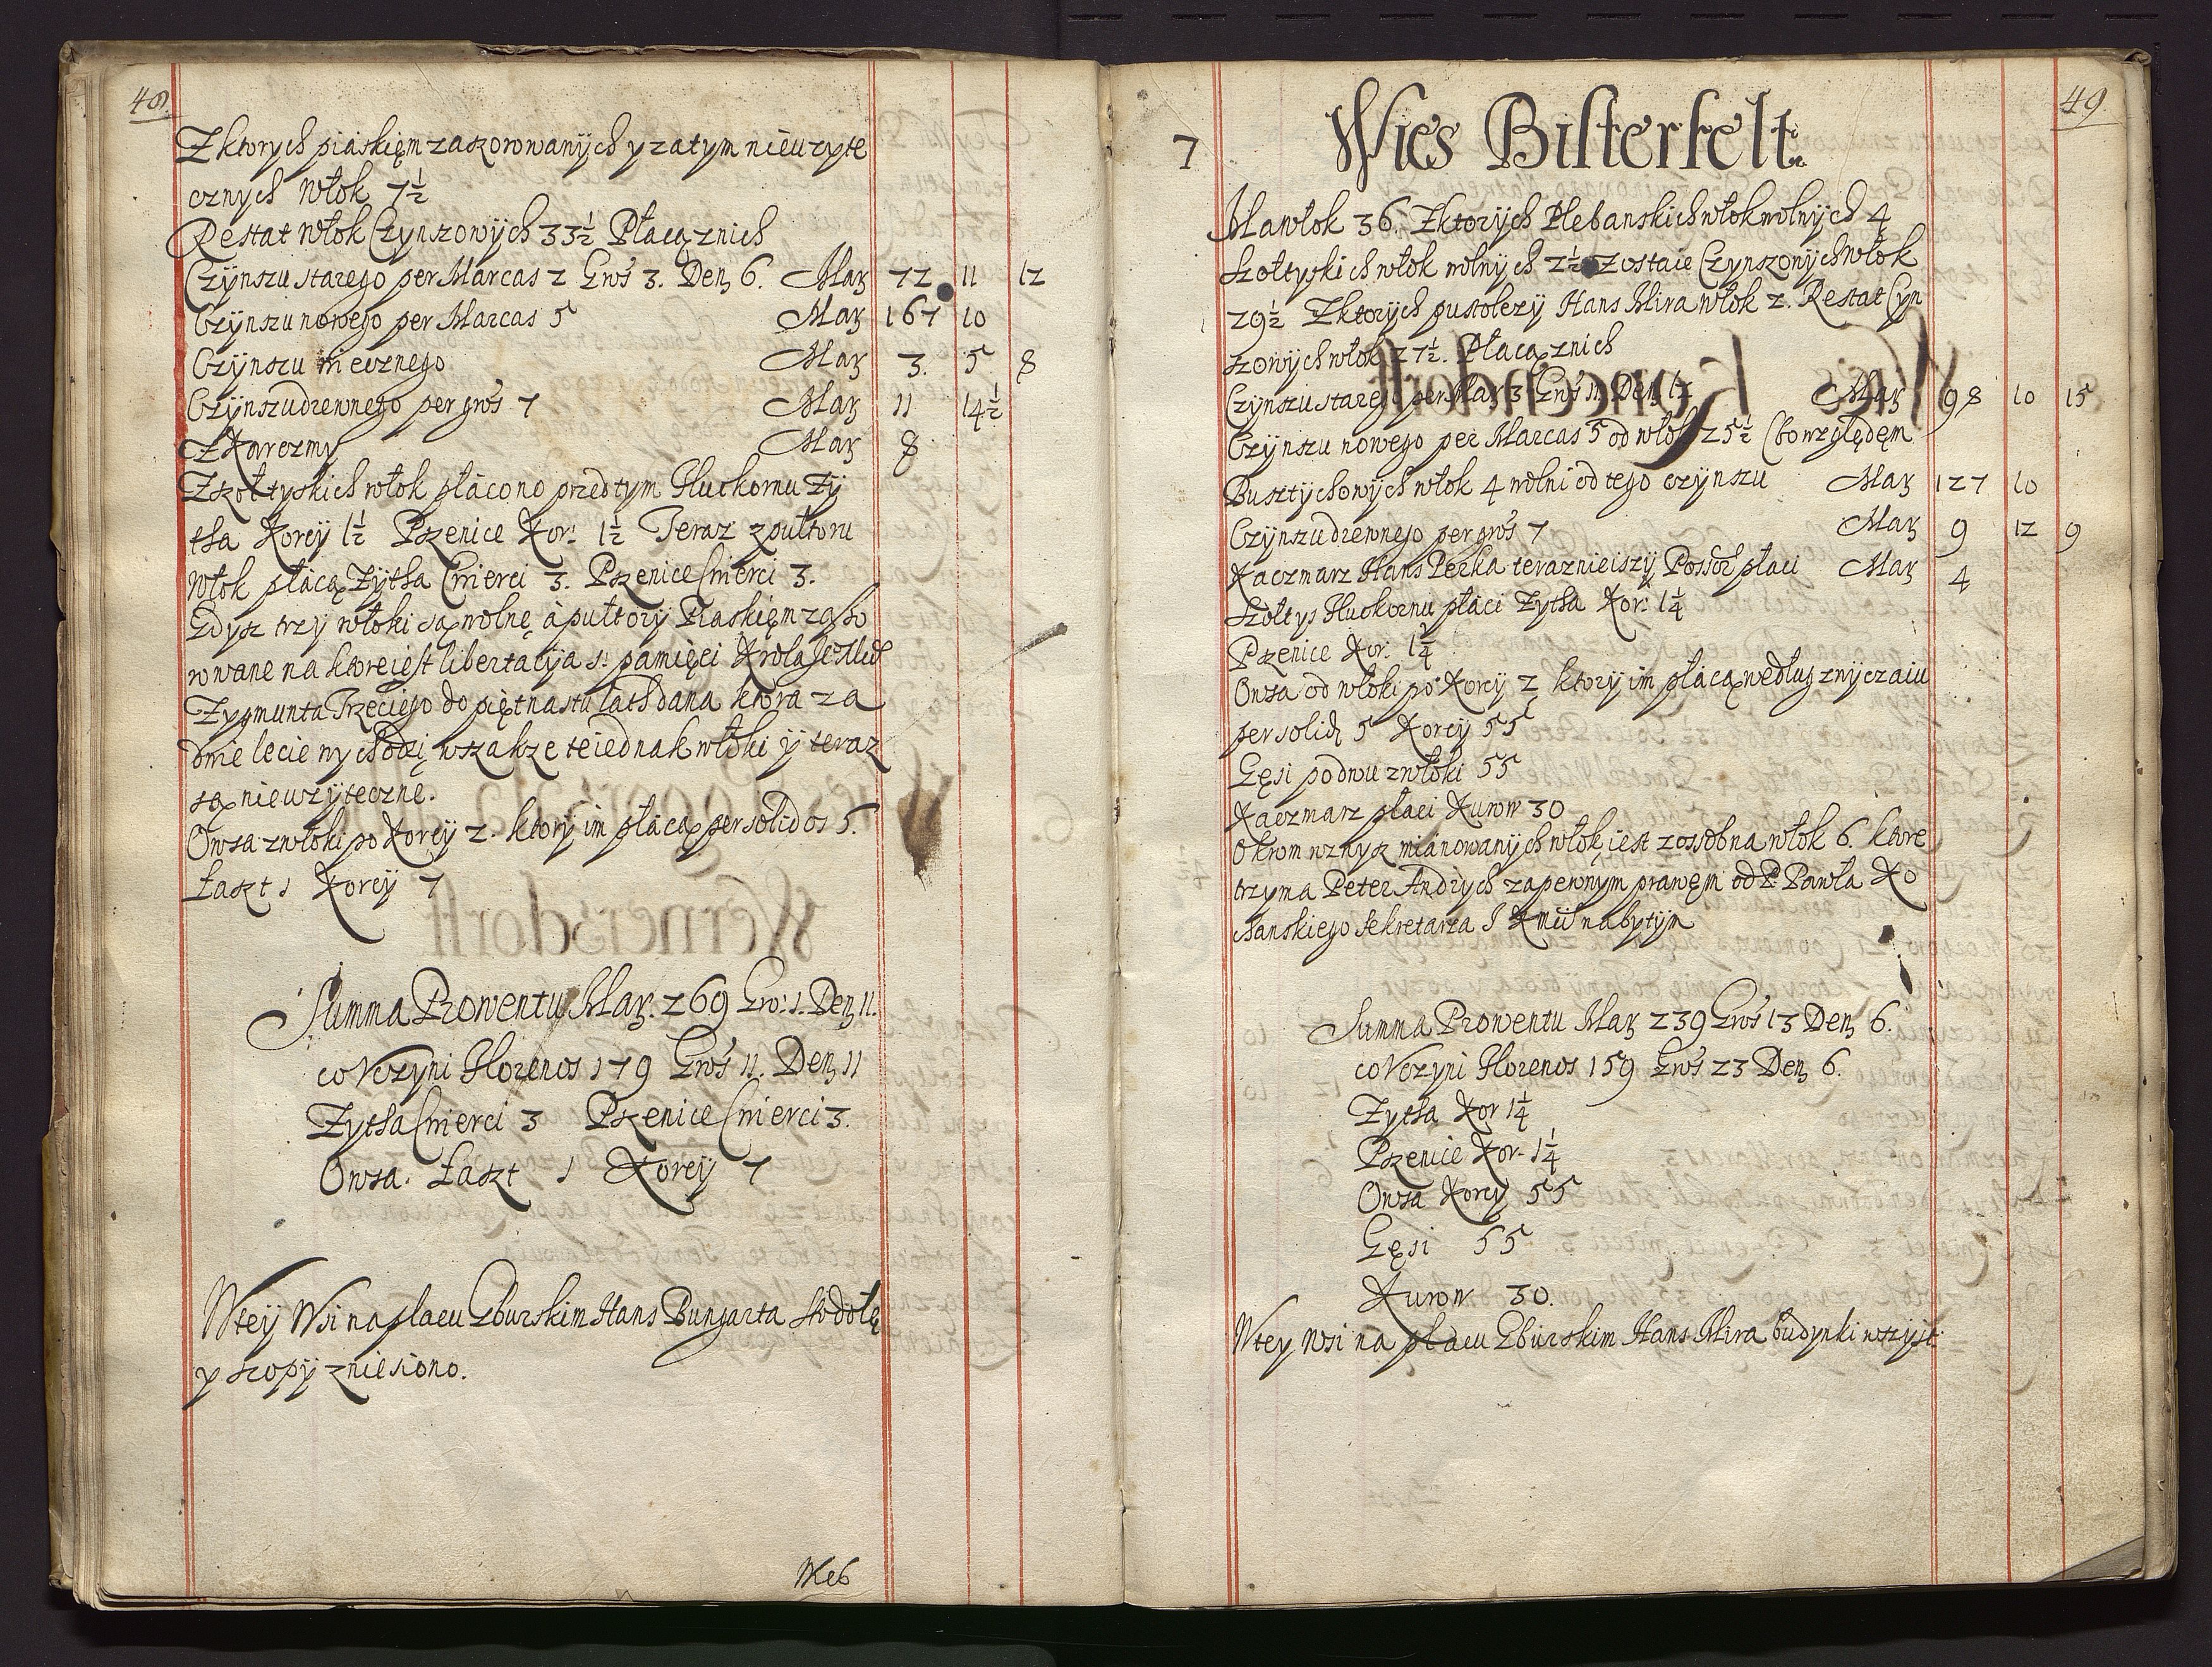 48.
Z ktorych piaskięm zaszorowanÿch y zatym nieuzyte
cznych włok 7½
Restat włok Czynszowÿch 33½ Płacą z nich
Czÿnszu starego per Marcas 2 Gros 3. Den. 6. Mar. 72 11 12
Czÿnszu nowego per Marcas 5 Mar. 167 10
Czÿnszu wiecznego Mar. 3. 5 8
Czÿnszu drewnego per gros 7 Mar. 11 14½
Z Karczmy Mar. 8
Z Szołtyskich włok płácono przedtym Hutkornu Zÿ
tha Korcÿ 1½ Pszenice Kor: 1½ Teraz z pułtoru
włok płácą Zÿtha Cwierci 3. Pszenice Cwierci 3.
Gdysz trzÿ włoki są wolnę à pułtory Piaskięm zaszo
rowane na ktore iest libertatÿa s. pamięci Krola Je Mci
Zygmunta Trzeciego do piętnastu lath dana ktora za
dwie lecie wychodzi, wszakze te iednak włoki ÿ teraz
są nieuzÿtecznę.
Owsa z włoki po Korcÿ 2. ktorÿ im płácą per solidos 5.
Łaszt 1 Korcÿ 7
Summa Prowentu Mar. 269 Gro: 1. Den. 11.
co Vczyni Florenos 179 Gros 11. Den. 11
Zytha Cwierci 3 Pszenice Cwierci 3.
Owsa. Łaszt 1 Korcÿ 7
W teÿ Wsi na placu Gburskim Hans Bungarta stodołę
y szopÿ zniesiono.
Wieś
49
7 Wies Bisterfelt.
Ma włok 36. Z ktorÿch Plebanskich włok wolnÿch 4
Szołtyskich włok wolnÿch 2½ Zostaie Czynszowÿch włok
29½ Z ktorych pusto lezÿ Hans Mira włok 2. Restat Cÿn
szowych włok 27½. Płacą z nich
Czÿnszu starego per Mar. 3 Gros 11 Den. 17 Mar. 98 10 15
Czÿnszu nowego per Marcas 5 od włok 25½ (bo względęm
Busztÿchowÿch włok 4 wolni od tego czÿnszu Mar. 127 10
Czÿnszu drewnego per gros 7 Mar. 9 12 9
Kaczmarz Hans Perka teraznieiszÿ Possor płaci Mar. 4
Szołtys Hutkornu płáci Zytha Kor: 1¼
Pszenice Kor: 1¼
Owsa od włoki po Korcÿ 2 ktorÿ im płácą według zwÿczaiu
per solid. 5 Korcÿ 55
Gęsi po dwu z włoki 55
Kaczmarz płaci Kurow 30
Okrom wzwysz mianowanÿch włok iest z ossobna włok 6. ktore
trzyma Peter Andrÿch za pewnym prawęm od P. Pawła Ko
chanskiego Sekretarza J K Mci nabytÿm
Summa Prowentu Mar. 239 Gros 13 Den. 6.
co Vczyni Florenos 159 Gros 23 Den. 6.
Zytha Kor 1¼
Pszenice Kor. 1¼
Owsa Korcy 55
Gęsi 55
Kurow 30.
W tey Wsi na placu Gburskim Hans Mira budynki wszÿst: